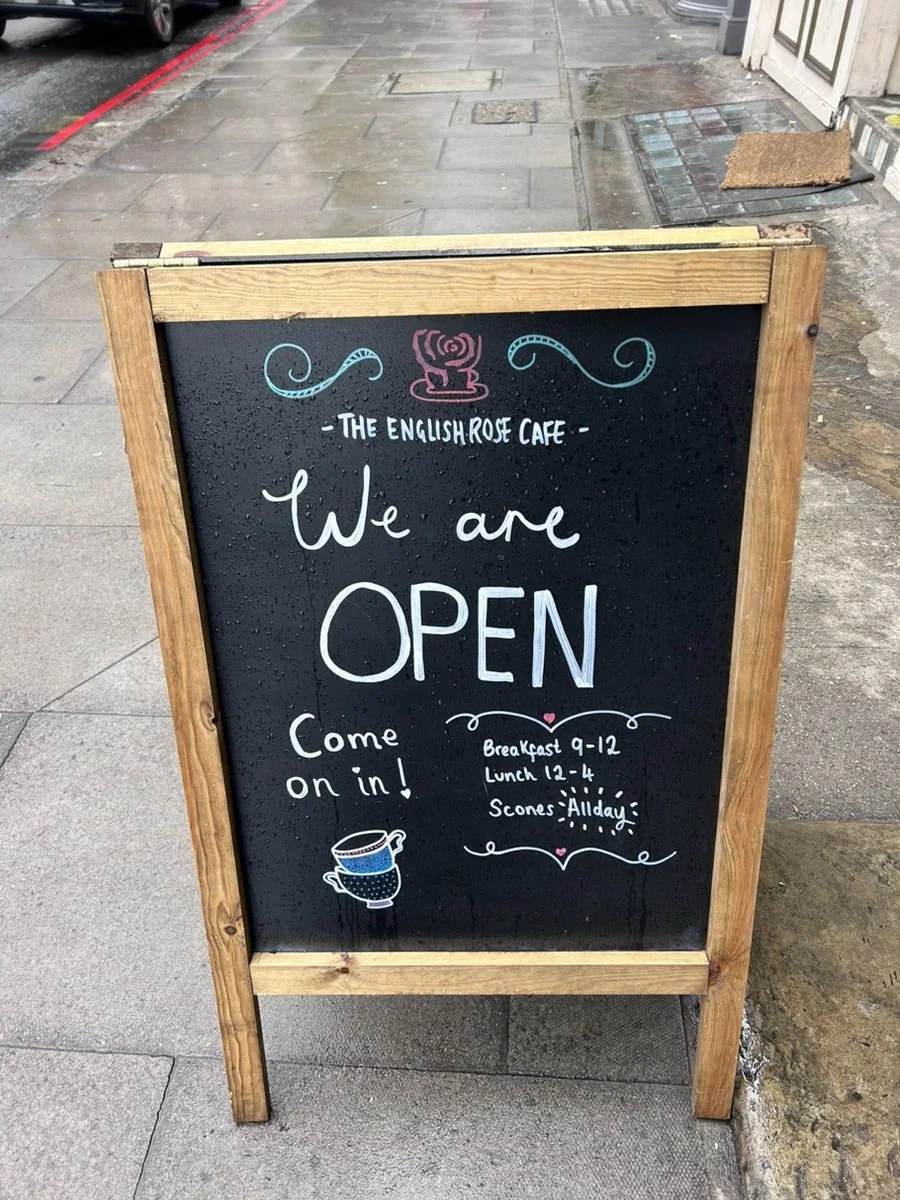 - THE ENGLISH ROSE CAFE -
We are
OPEN
Come
on in!
Breakfast 9-12
Lunch 12-4
Scones Allday